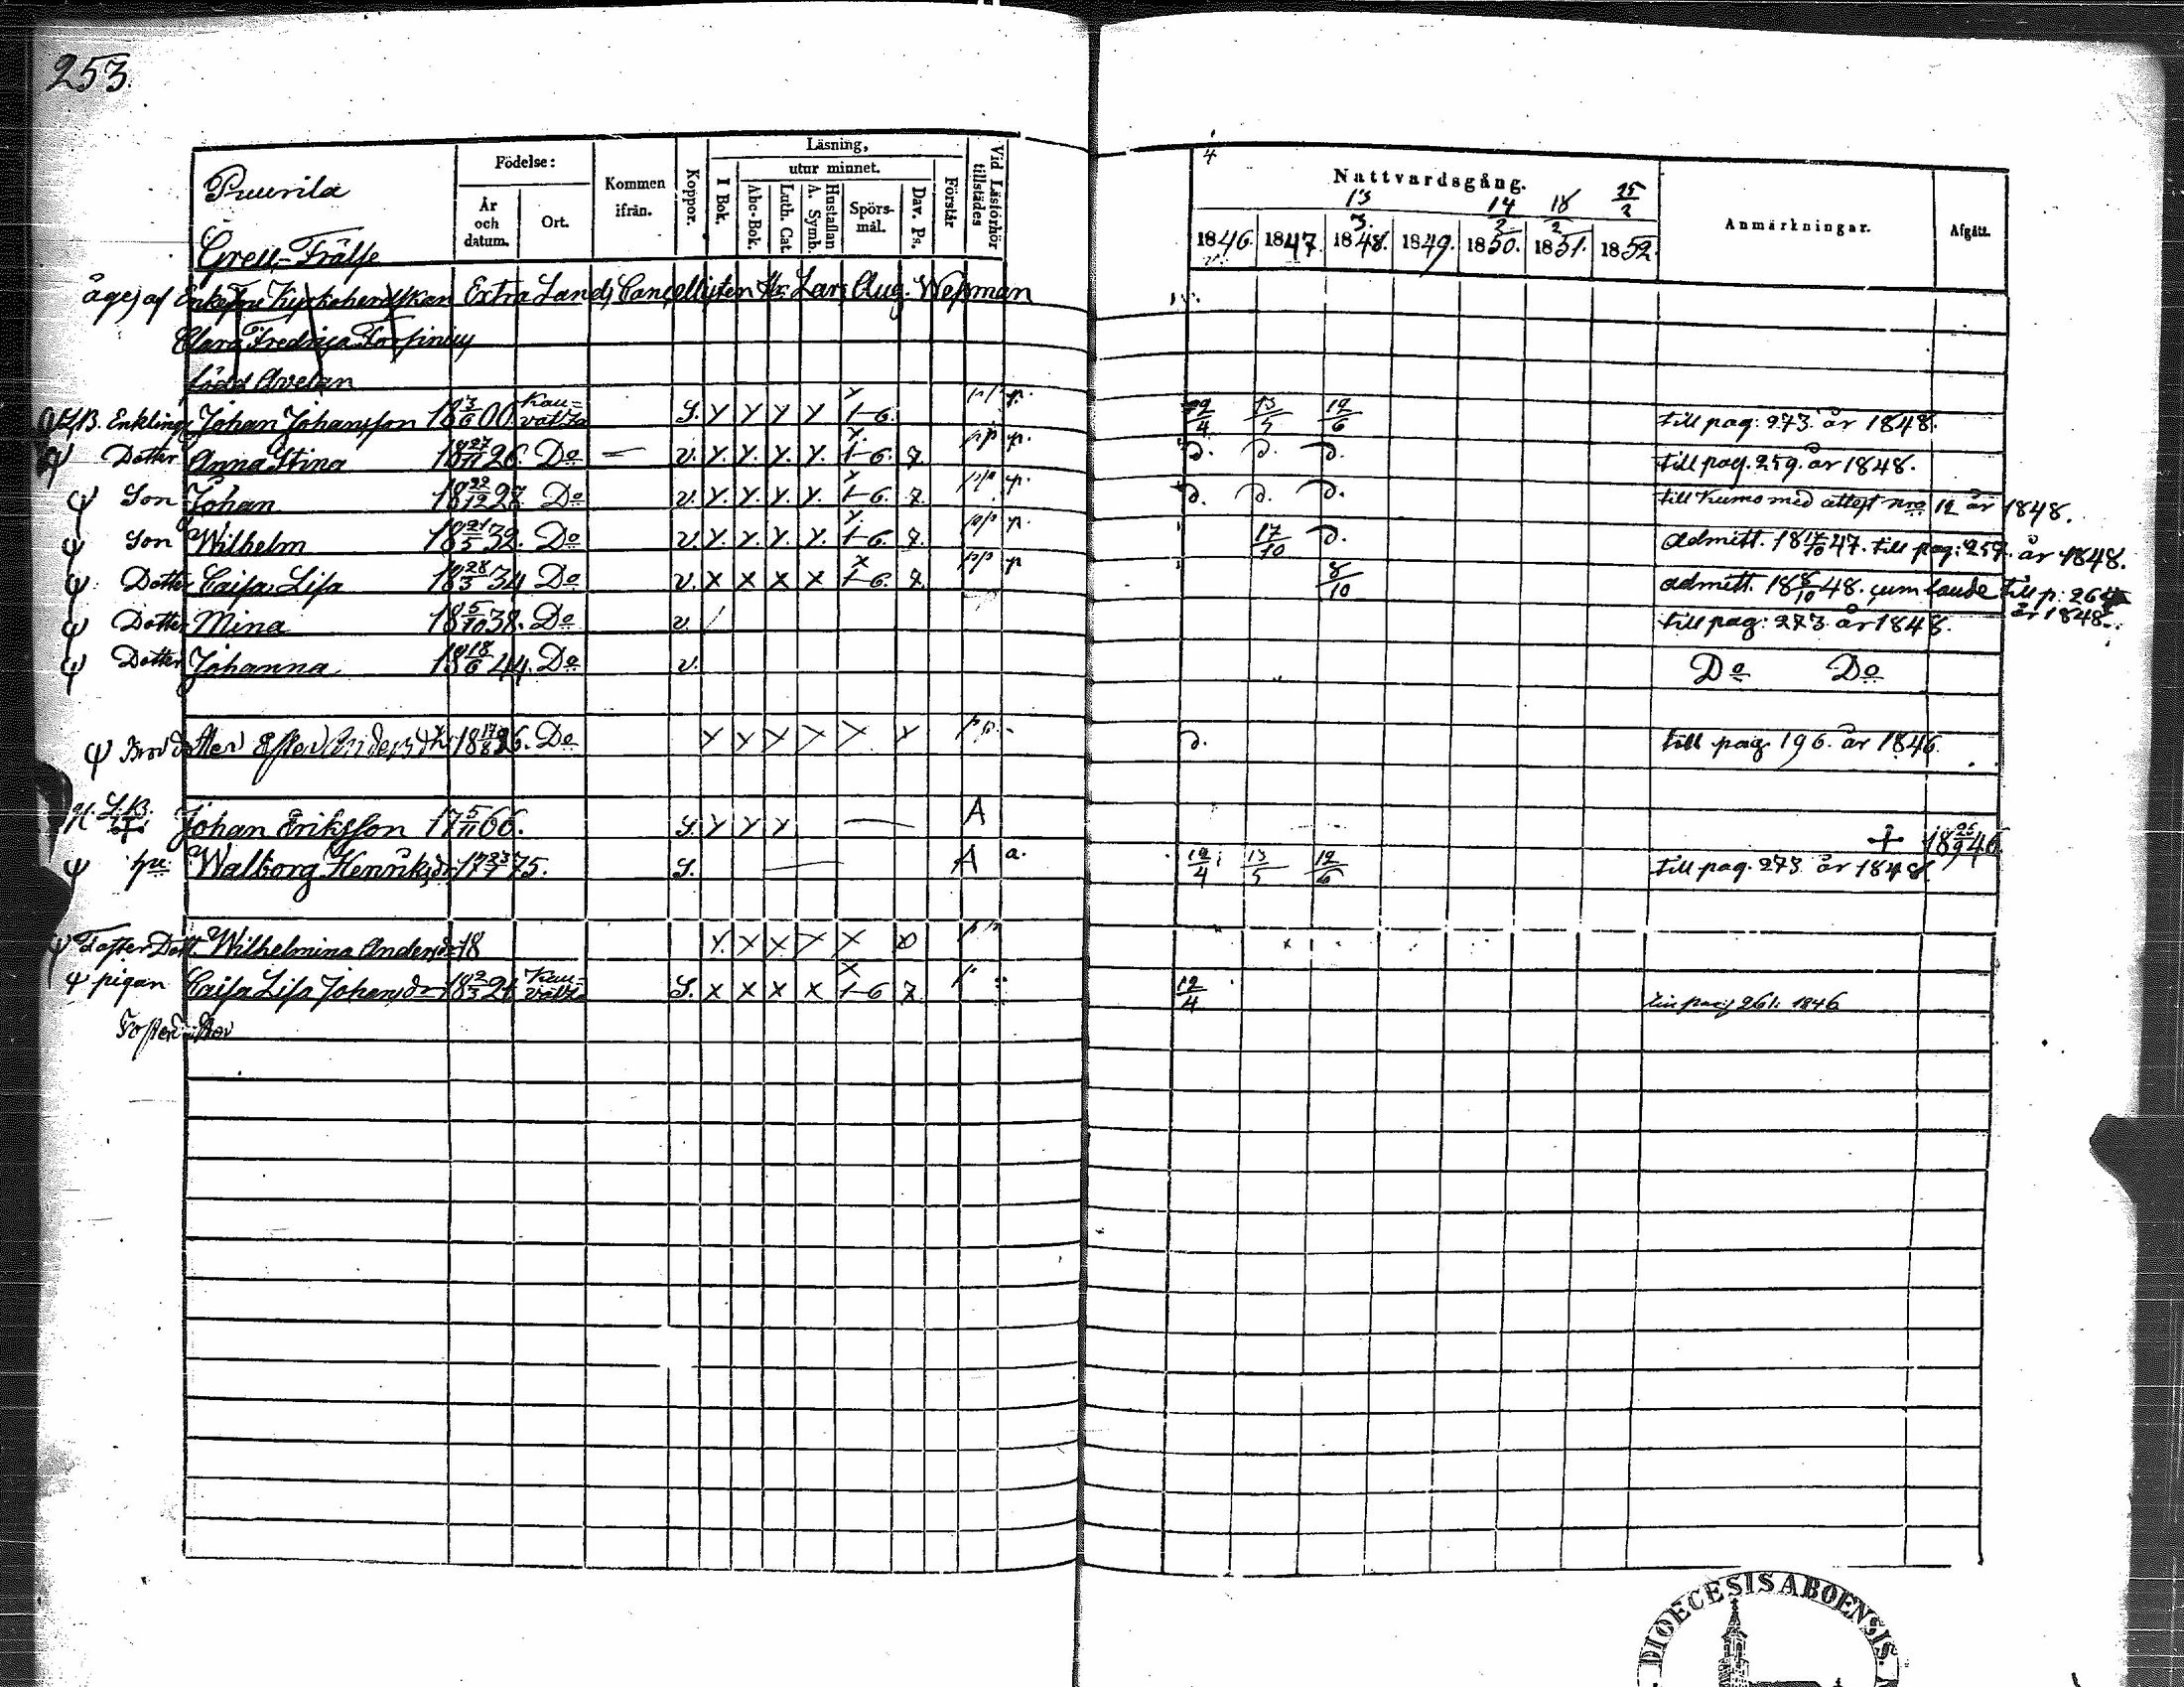 253.
Puurila
Grels-Frälse
Födelse:
År och datum.
Ort.
Kommen ifrån.
Koppor.
Läsning,
I Bok.
utur minnet.
Abc-Bok.
Luth. Cat.
A. Symb.
Hustaflan
Spörs-mål.
Dav. Ps.
Förstår
Vid Läsförhör tillstädes
Nattvardsgång.
4 13/3. 14/2 18/2 25/2
1846. 1847. 1848. 1849. 1850. 1851. 1852.
Anmärkningar.
Afgått.
äges af Enkefru Kyrkoherdskan Extra Lands Cancellisten Hr Lars Aug. Wessman
Clara Fredrica Forsinius
född Avelan
Enkling Johan Johansson 18 3/6 00. Kau=vattsa S. Y Y Y Y 1-6. 12/4 13/5 12/6 till pag: 273. år 1848.
ψ Dotter Anna Stina 18 27/11 26. Do v. Y. Y. Y. Y. 1-6. 7. D. D. D. till pag. 259. år 1848.
ψ Son Johan 18 22/12 28. Do v. Y. Y. Y. Y. 1-6. 7. D. D. D. till Kumo med attest nro 12 år 1848.
ψ Son Wilhelm 18 21/5 32. Do v. Y. Y. Y. Y. 1-6. 7. 17/10 D. admitt. 18 17/10 47. till pag: 257. år 1848.
ψ Dotter Caisa Lisa 18 28/3 34 Do v. X X X X 1-6. 7. 8/10 admitt. 18 8/10 48. cum laude till p: 264 år 1848.
ψ Dotter Mina 18 5/10 38. Do v. till pag: 273. år 1848.
ψ Dotter Johanna 18 18/6 44. Do v. Do Do
ψ Ester Andersdr 18 17/8 26. Do Y Y X X X Y D. till pag 196. år 1846.
Johan Eriksson 17 5/11 66. S. Y Y Y A + 18 26/9 46.
ψ hu Walborg Henriksdr 17 23/7 75. S. A a. 12/4 13/5 12/6 till pag. 273 år 1848.
ψ Foster Dott. Wilhelmina Andersdr 18 Y. X X X X
ψ pigan Caisa Lisa Johansdr 18 2/3 24 Kau=vattsa S. X X X X 1-6 7. 12/4 till pag 261: 1846
DIOECESIS ABOENSIS.